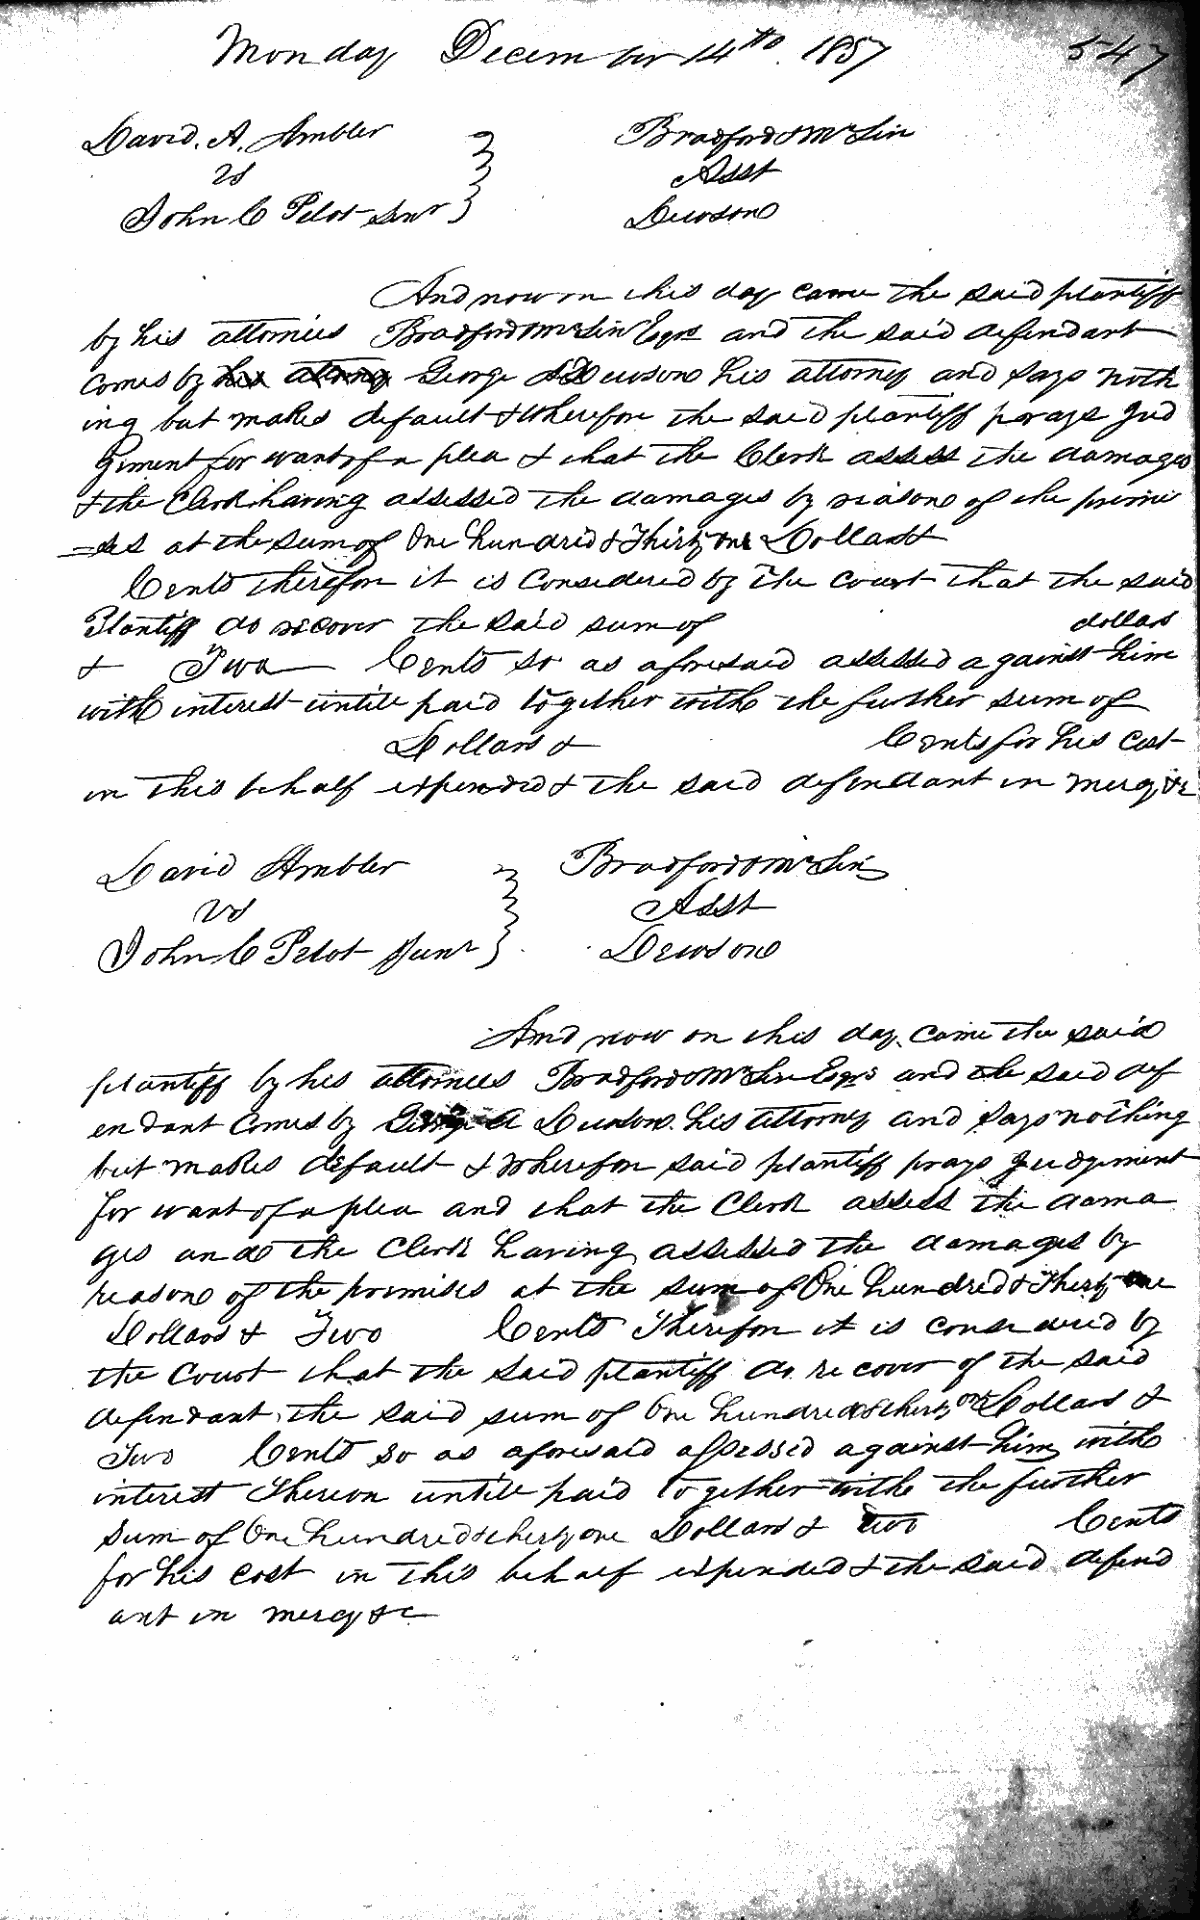 Monday December 14th. 1857 547
David. A. Ambler Bradford & McLin
vs Asst
John C Pelot Senr Dewson
And now on this day came the said plantiff
by his attornies Bradford & McLin Esqrs and the said defendant
comes by his attorney George A Dewson his attorney and says noth
ing but makes default & Wherefore the said plantiff prays Jud
giment for want of a plea & that the Clerk assess the damages
& the Clerk having assessed the damages by reason of the premi
=ses at the sum of One hundred & Thirty one Dollars &
Cents therefore it is considered by the court that the said
Plantiff do recover the said sum of dollars
& Two Cents so as aforesaid assessed against him
with interest untill paid together with the further sum of
Dollars & Cents for his cost
in this behalf expended & the said defendant in mercy &c
David Ambler Bradford & McLin
vs Asst
John C Pelot Junr Dewson
And now on this day came the said
plantiff by his attornies Bradford & McLin Esqrs and the said def
endant comes by George A Dewson his attorney and says nothing
but makes default & Wherefore said plantiff prays Judgement
for want of a plea and that the Clerk assess the dama
ges and the Clerk having assessed the damages by
reason of the premises at the sum of One hundred & Thirty one
Dollars & Two Cents Therefore it is considered by
the Court that the said plantiff do recover of the said
defendant, the said sum of One hundred & thirty one Dollars &
Two Cents so as aforesaid assessed against him with
interest thereon untill paid together with the further
sum of One hundred & thirty one Dollars & two Cents
for his cost in this behalf expended & the said defend
ant in mercy &c